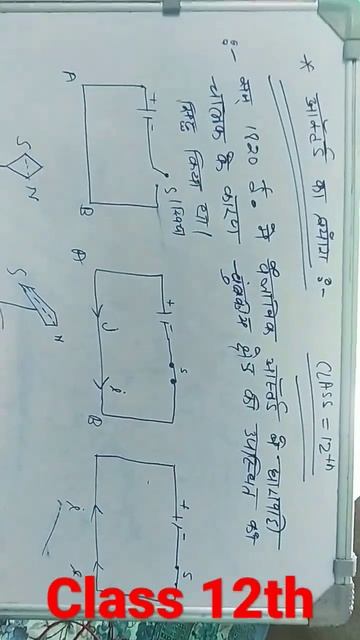 * आर्स्टेड का प्रयोग :-
CLASS = 12th
:- सन् 1820 ई० में वैज्ञानिक आर्स्टेड ने धारावाही
चालक के कारण चुंबकीय क्षेत्र की उपस्थिति को
सिद्ध किया था।
+ -
S स्विच
A
B
S
N
+ -
S
A
i
B
S
N
+ -
S
i
Class 12th